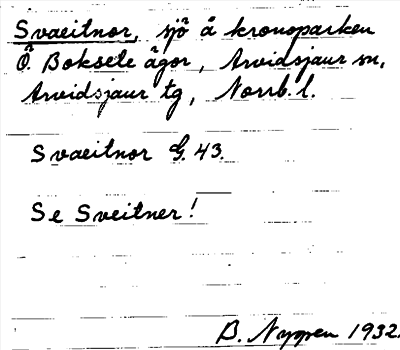 Svaeitnor, sjö å kronoparken
Ö. Boksele ägor, Arvidsjaur sn,
Arvidsjaur tg, Norrb. l.
Svaeitnor G. 43.
Se Sveitner!
B. Nyman 1932.